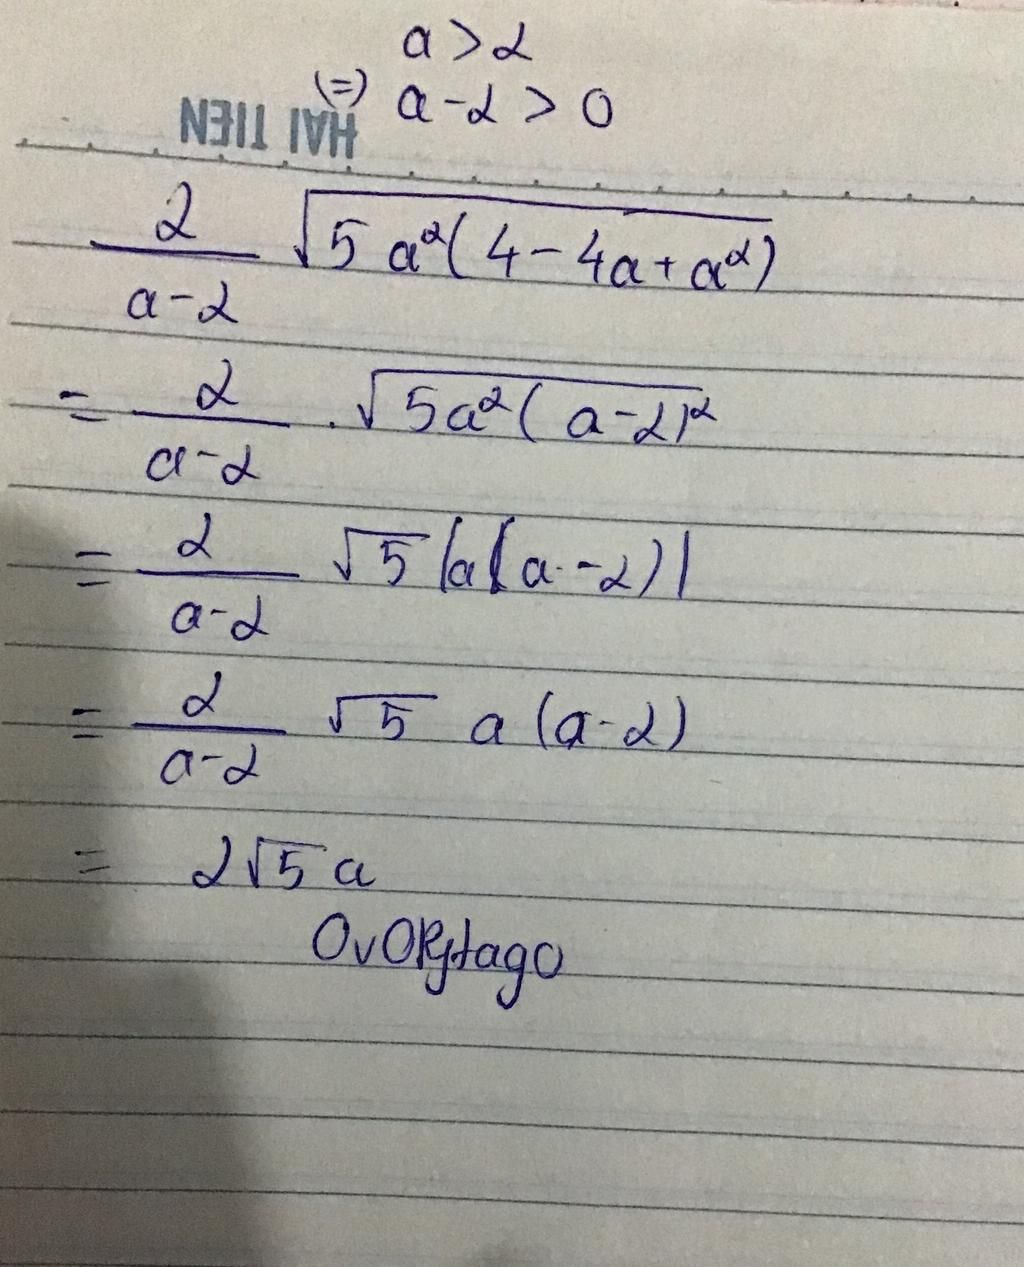 a > 2
(=) a - 2 > 0
HAI TIEN
2/(a-2) √(5a²(4 - 4a + a²))
= 2/(a-2) . √(5a²(a-2)²)
= 2/(a-2) √5 |a(a-2)|
= 2/(a-2) √5 a (a-2)
= 2√5 a
OvOPytago